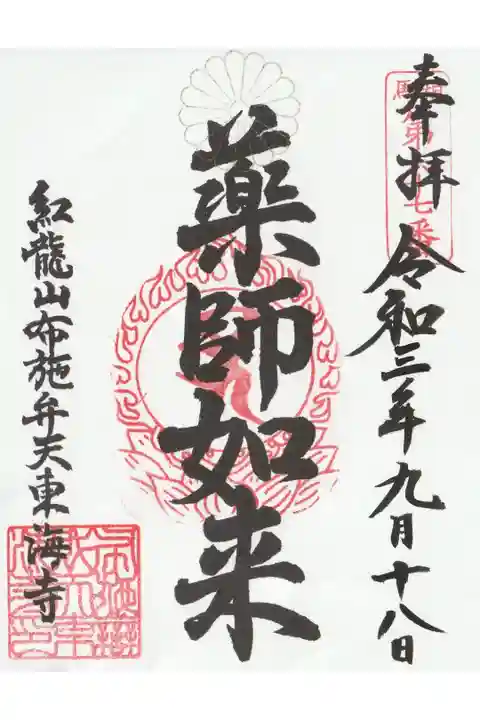 奉拝 令和三年九月十八日
薬師如来
紅龍山布施弁天東海寺